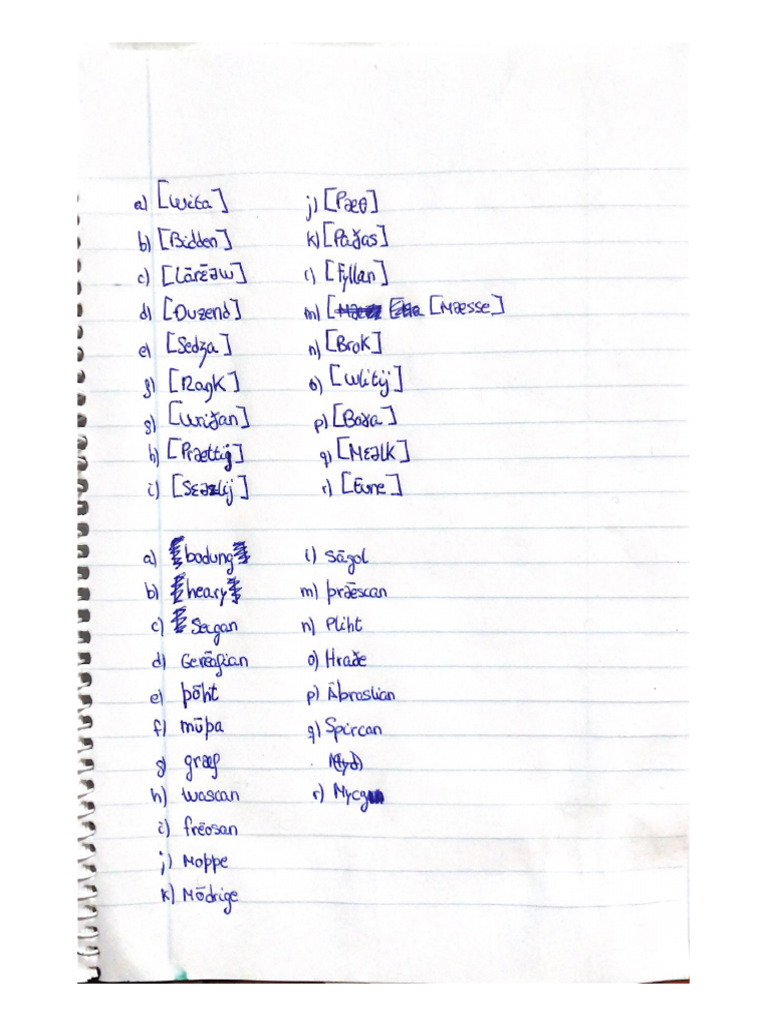 a) [Wita]
b) [Bidden]
c) [Lārēəw]
d) [Ðuzend]
e) [Sedʒa]
f) [Raŋk]
g) [Wriɣan]
h) [Prættij]
i) [Sɛəlij]
j) [Pæθ]
k) [Paɣas]
l) [Fyllan]
m) [Mæsse]
n) [Brok]
o) [Wlitij]
p) [Boɣa]
q) [Mɛəlk]
r) [Ēvne]
a) bodung
b) hearg
c) Seggan
d) Gerēafian
e) þōht
f) mūþa
g) græf
h) wascan
i) frēosan
j) Hoppe
k) Mōdrige
l) Sāgol
m) þrǣscan
n) Pliht
o) Hraðe
p) Ābraslian
q) Spircan
r) Mycg